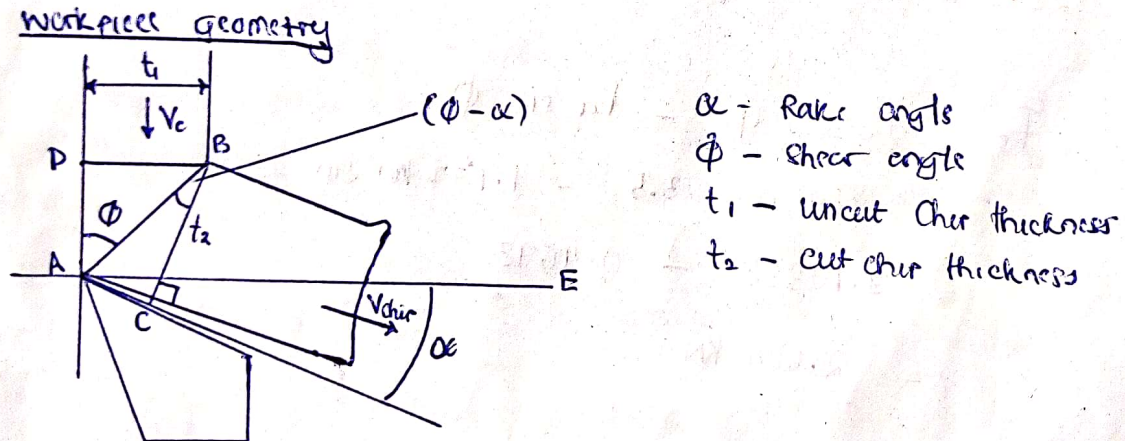 Workpiece Geometry
t1
Vc
(ϕ-α)
D
B
ϕ
t2
A
E
C
Vchip
α
α - Rake angle
ϕ - Shear angle
t1 - uncut Chip thickness
t2 - cut chip thickness